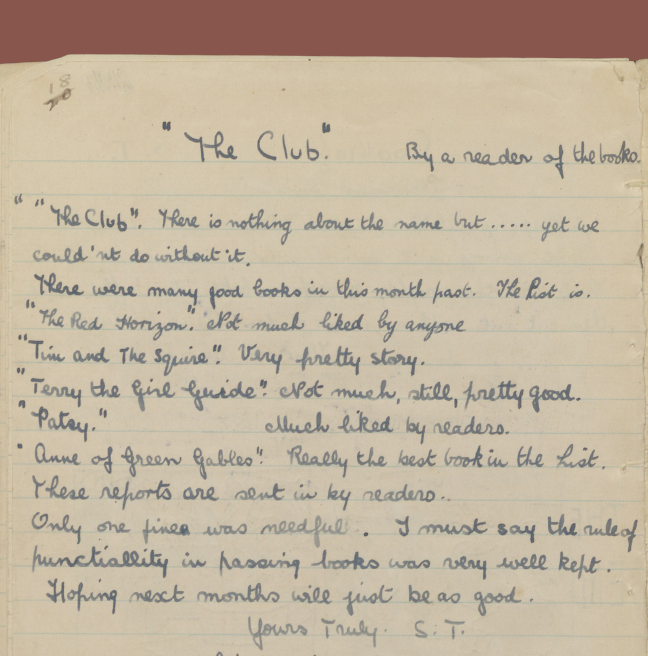 18
20
"The Club." By a reader of the books.
" "The Club". There is nothing about the name but ..... yet we
could'nt do without it.
There were many good books in this month past. The List is.
"The Red Horizon". Not much liked by anyone
"Tim and The Squire". Very pretty story.
"Terry the Girl Guide". Not much, still, pretty good.
"Patsy." Much liked by readers.
" Anne of Green Gables". Really the best book in the List.
These reports are sent in by readers..
Only one fines was needful. I must say the rule of
punctiallity in passing books was very well kept.
Hoping next months will just be as good.
Yours Truly. S. T.